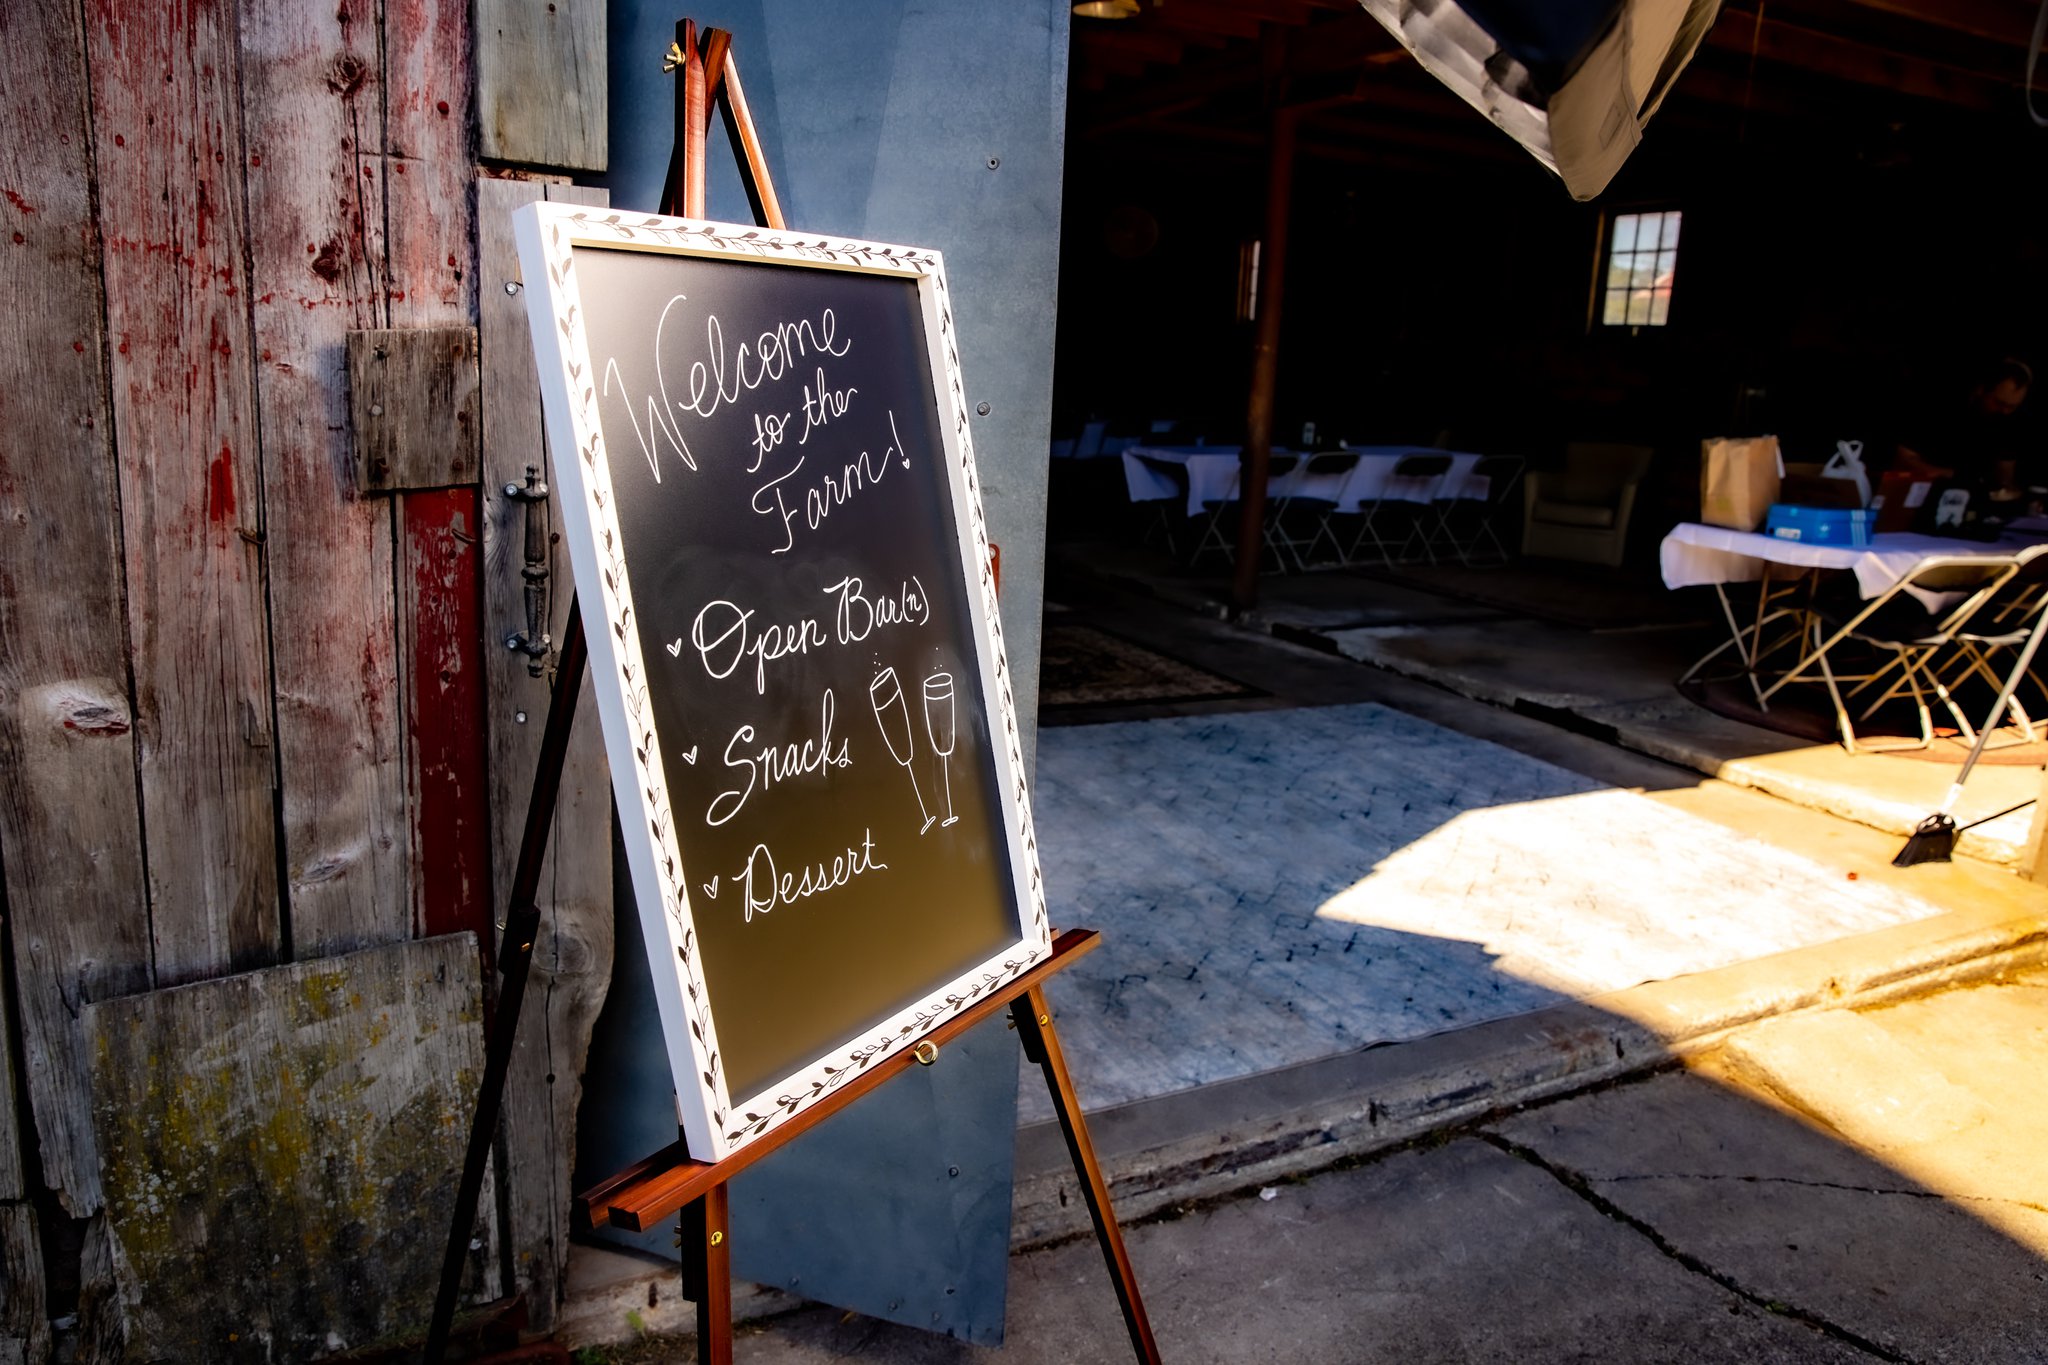 Welcome
to the
Farm!
Open Bar(n)
Snacks
Dessert